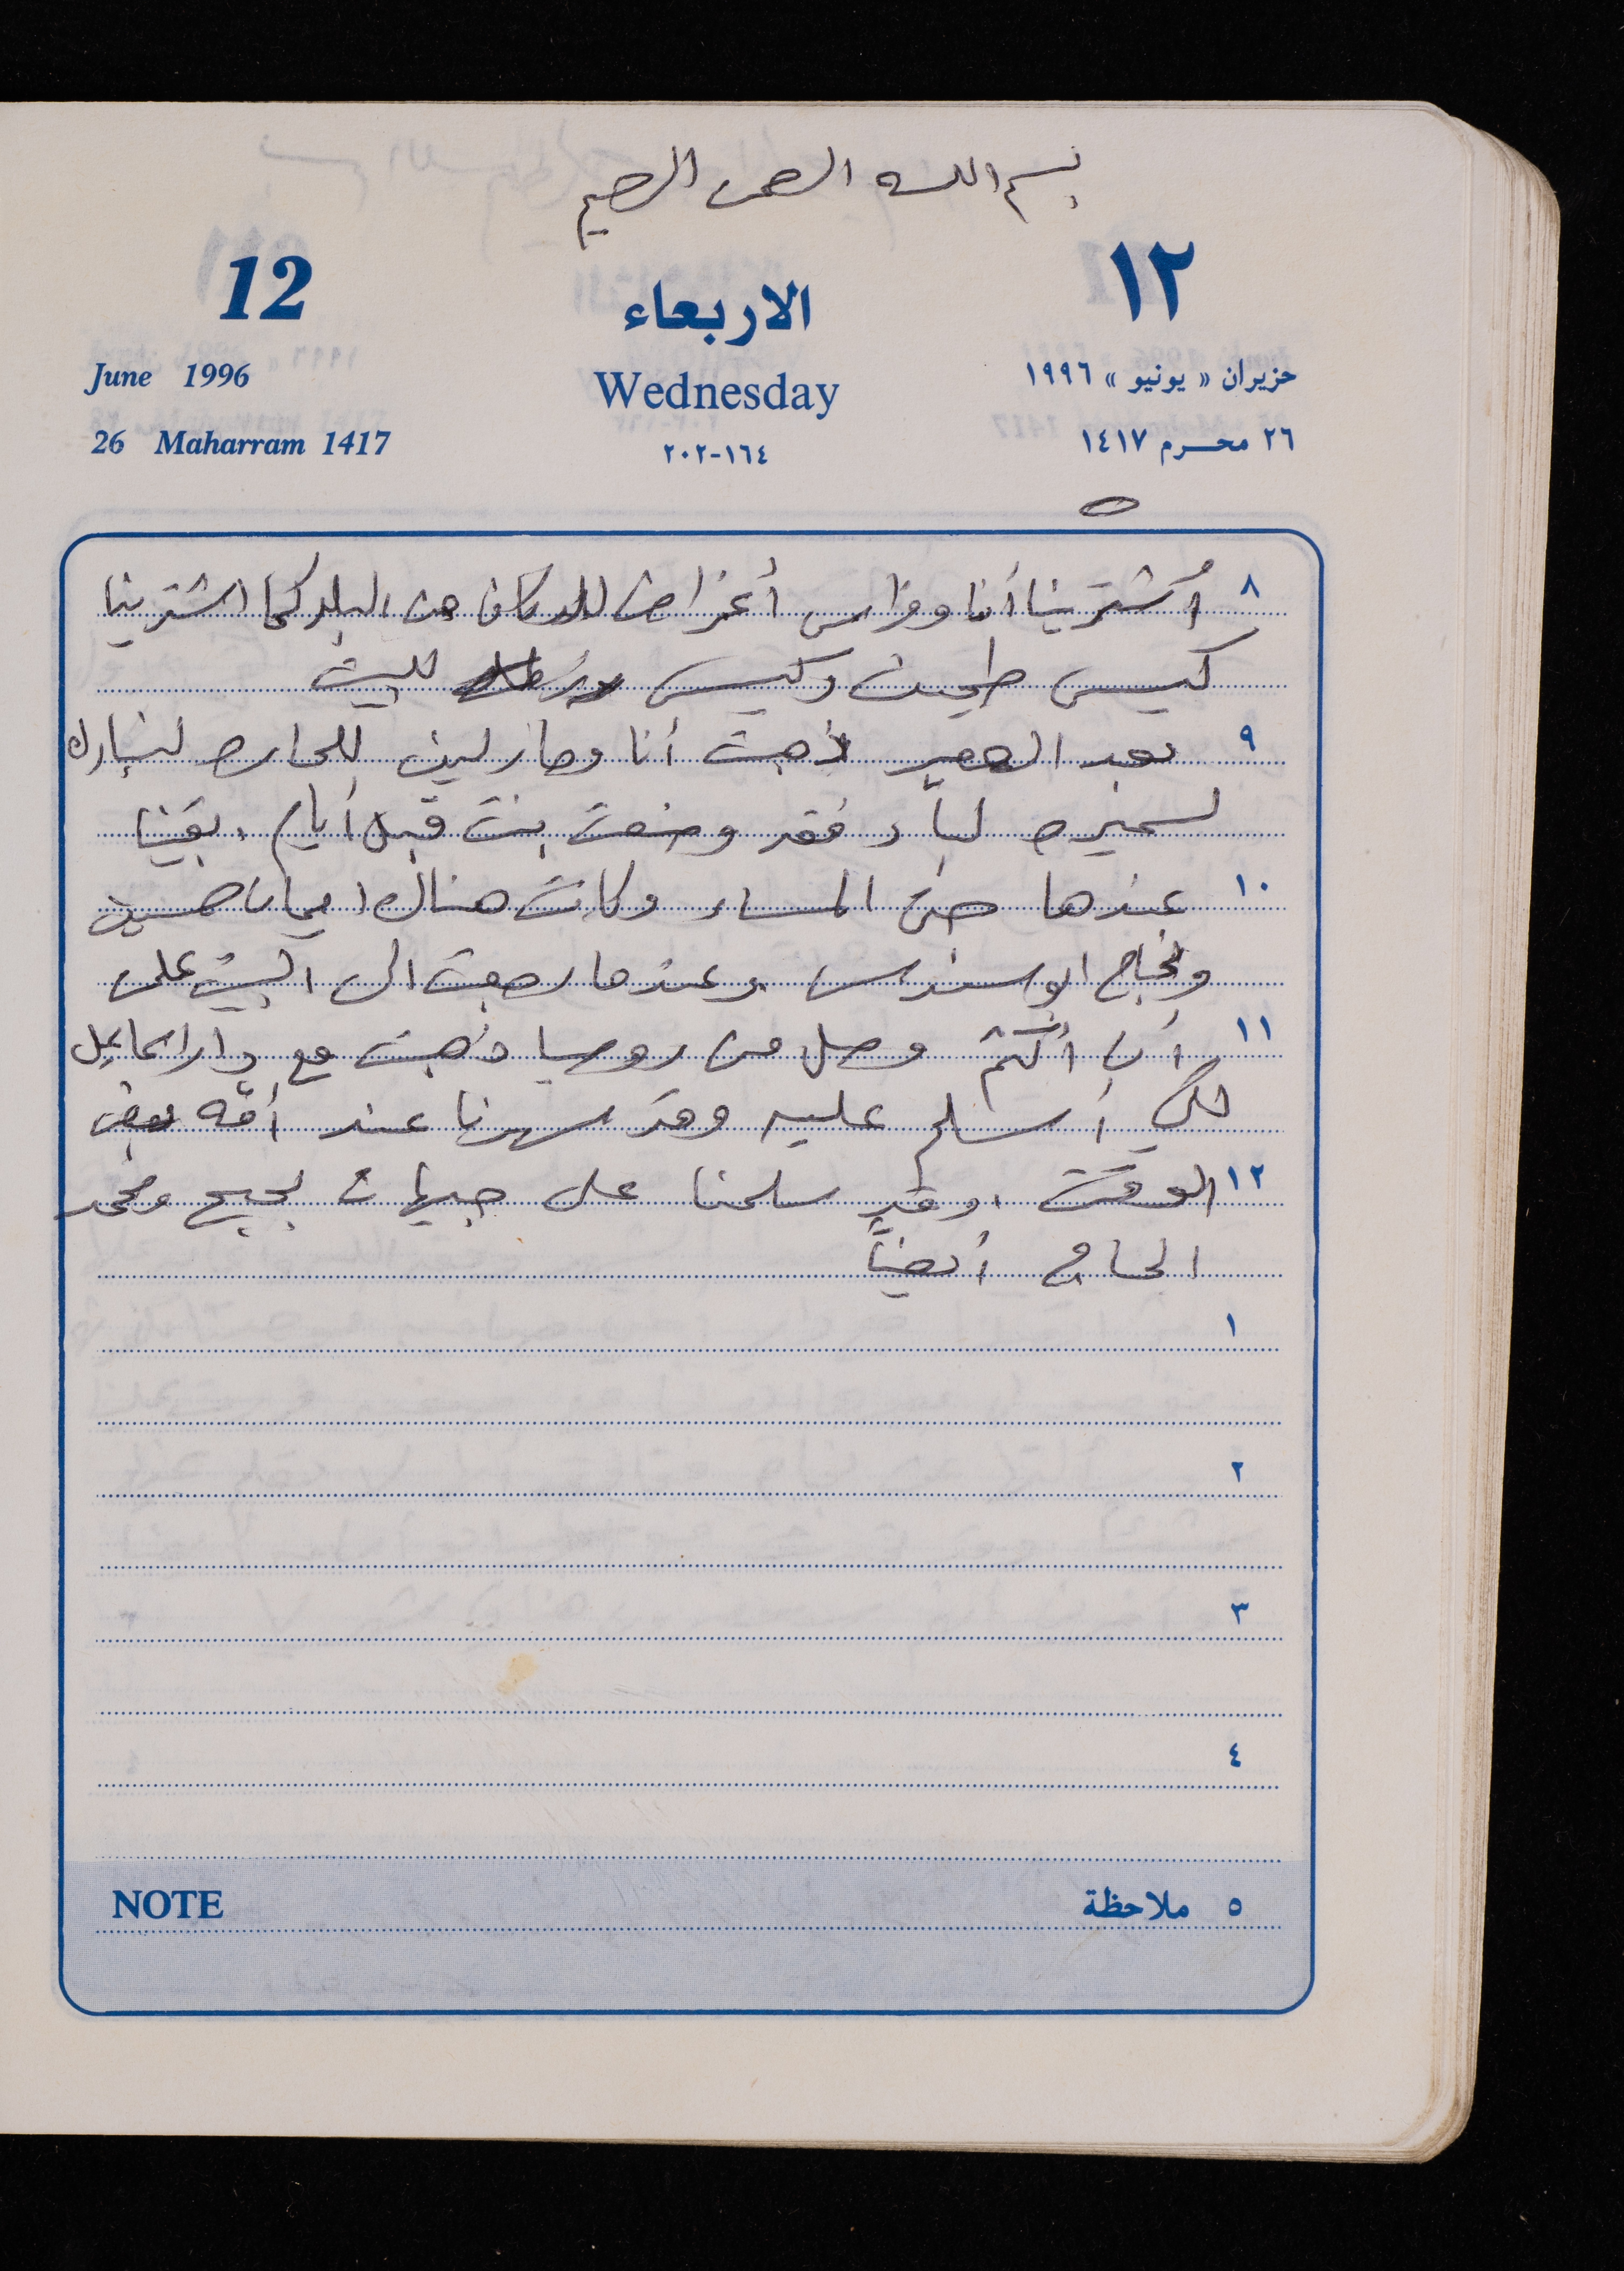 بسم الله الرحمن الرحيم
12 الاربعاء ١٢
June 1996 Wednesday حزيران « يونيو » ١٩٩٦
26 Maharram 1417 ١٦٤-٢٠٢ ٢٦ محرم ١٤١٧
٨ أشترينا أنا وفارس أغراض للدكان من البلد كما اشترينا
كيس طحين وكيس للبيت
٩ بعد العصر ذهبت أنا ومازلين للحاره لنبارك
لسميره فقد وضعت بنت قبل أيام . بقينا
١٠ عندها حتى المساء وكانت هناك ايمان حسين
ونجاح ابو سندس . وعندما رجعت الى البيت علمت
١١ أن أكثم وصل من روسيا فذهبت مع دار اسماعيل
لكي أسلم عليه وقد سهرنا عند أمه بعض
١٢ الوقت . وقد سلمنا على بجيح ومحمد
الحاج أيضاً
١
٢
٣
٤
NOTE ٥ ملاحظة